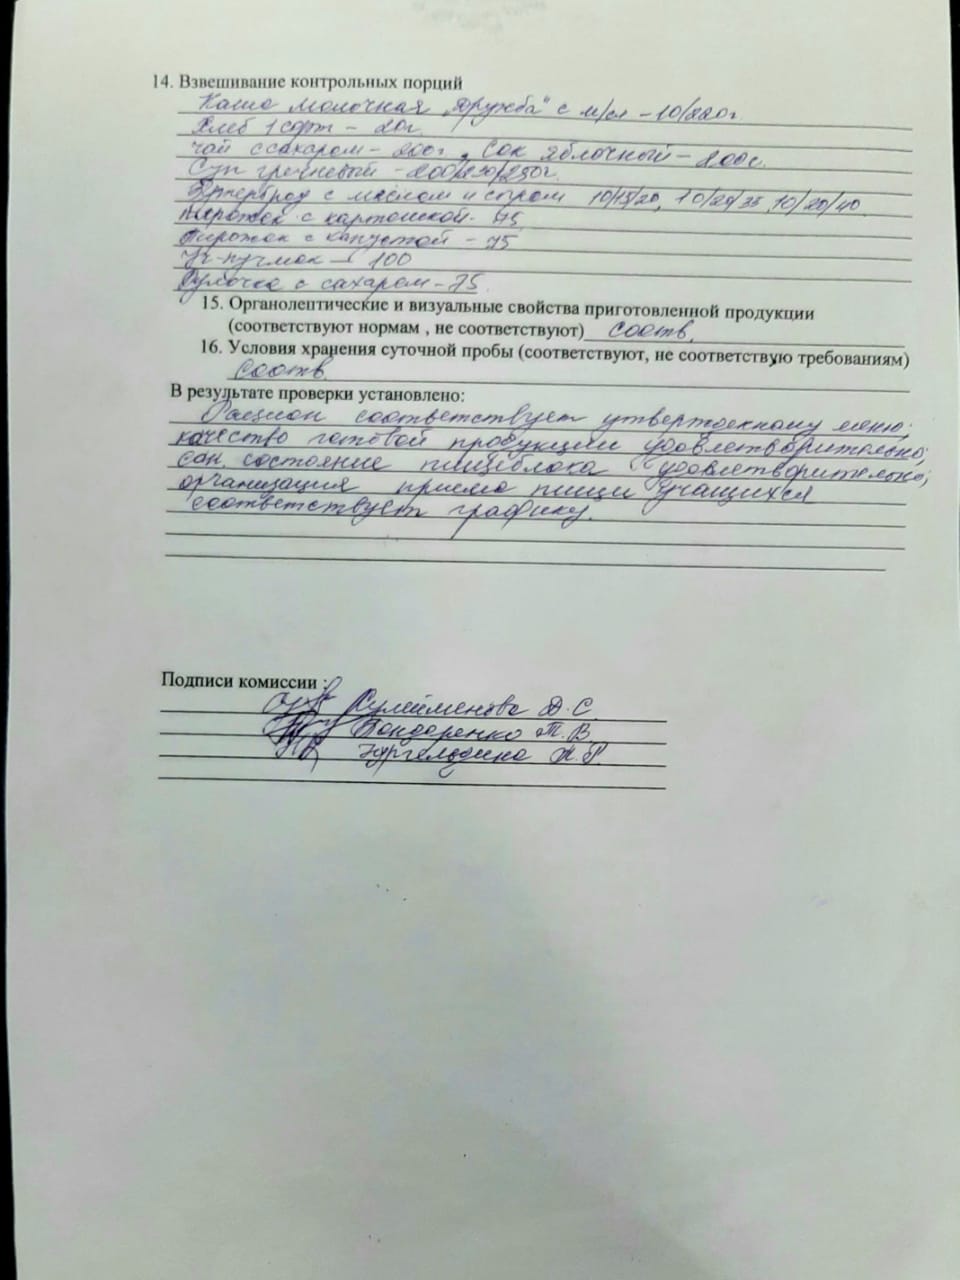 14. Взвешивание контрольных порций
Каша молочная "Дружба" с м/сл - 10/220г.
Хлеб 1 сорт - 20г.
Чай с сахаром - 200г, Сок яблочный - 200г.
Суп гречневый - 200/250г.
Бутерброд с маслом и сыром 10/15/20, 10/25/35, 10/20/40
Пирожок с картошкой - 75
Пирожок с капустой - 75
- 100
Булочка с сахаром - 75.
15. Органолептические и визуальные свойства приготовленной продукции
(соответствуют нормам , не соответствуют) соотв.
16. Условия хранения суточной пробы (соответствуют, не соответствую требованиям)
соотв.
В результате проверки установлено:
Рацион соответствует утвержденному меню;
качество готовой продукции удовлетворительно;
сан. состояние пищеблока удовлетворительно;
организация приема пищи учащихся
соответствует графику.
Подписи комиссии :
Сулейменова Д.С.
Бондаренко Т.В
Нургельдина